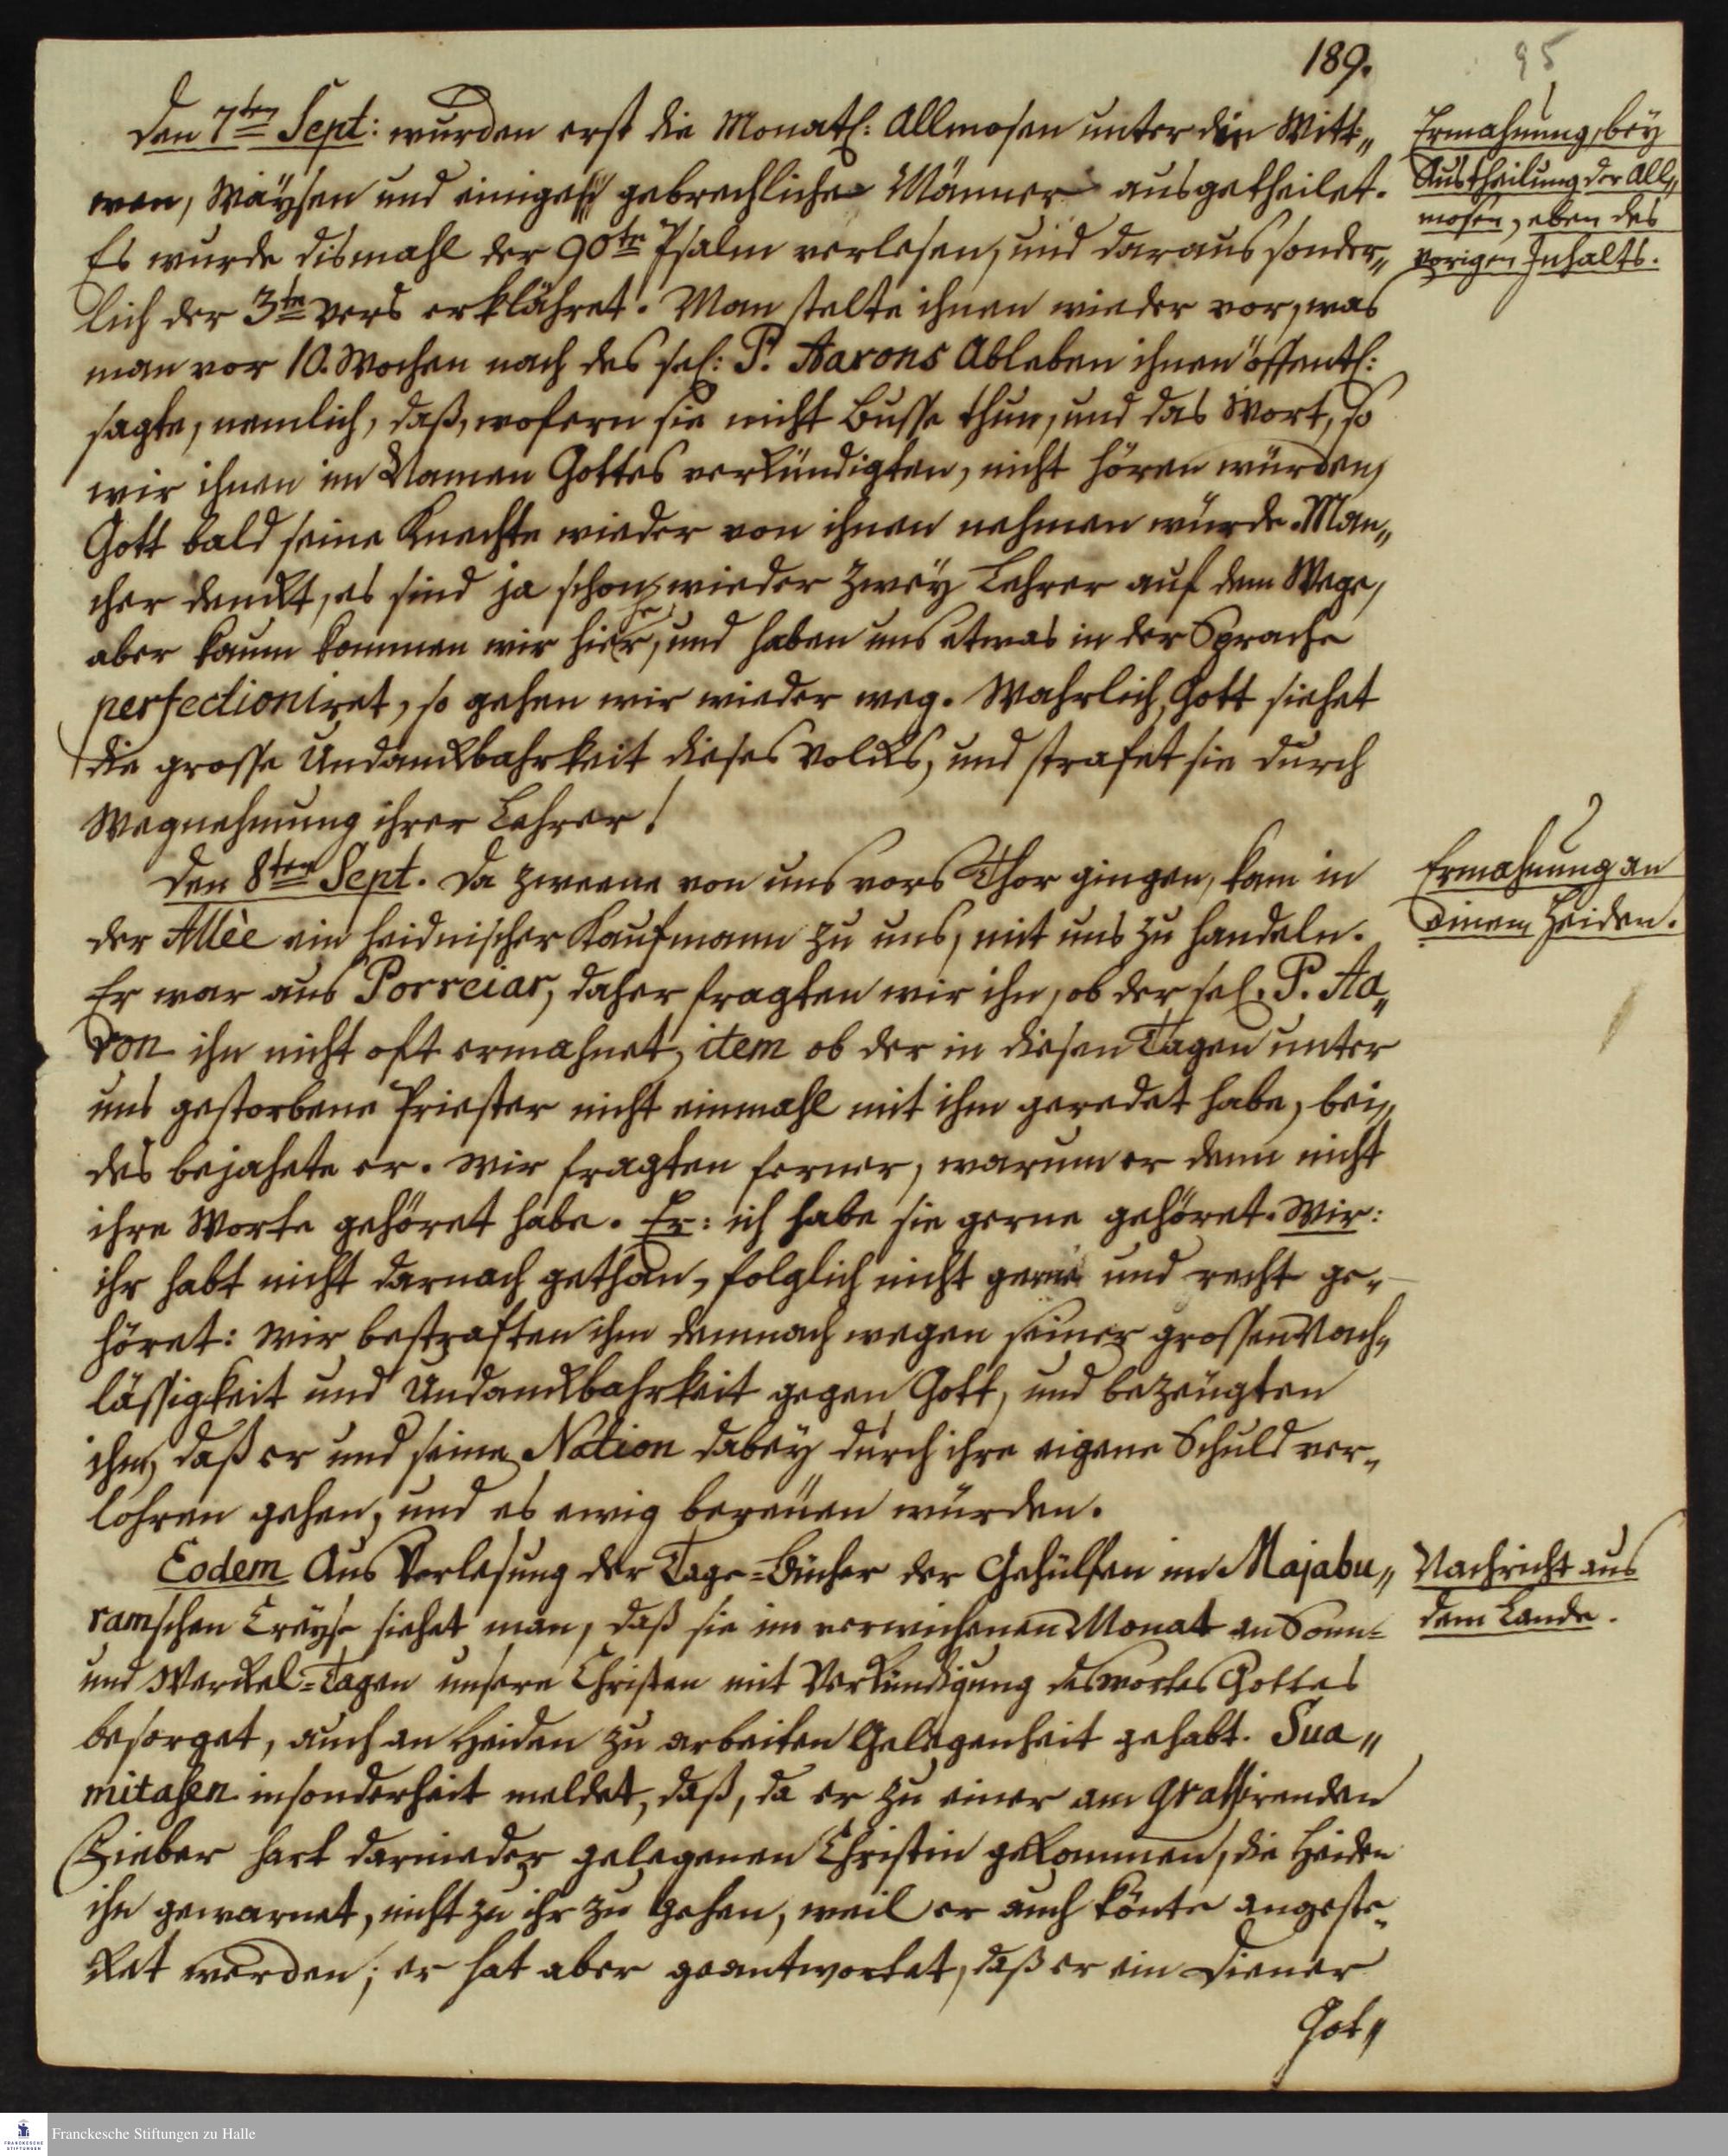 189.
95
Den 7ten Sept: wurden erst die Monatl: Allmosen unter die Witt„
wen, Wäysen und einige gebrechliche Männer ausgetheilet.
Es wurde dismahl der 90te Psalm verlesen, und daraus sonder„
lich der 3te Vers erklähret. Man stelte ihnen wieder vor, was
man vor 10. Wochen nach des sel: P. Aarons Ableben ihnen öffentl:
sagte, nemlich, daß, wofern sie nicht Busse thun, und das Wort, so
wir ihnen im Namen Gottes verkündigten, nicht hören würden,
Gott bald seine Knechte wieder von ihnen nehmen würde. Man„
cher denckt, es sind ja schon wieder zwey Lehrer auf dem Wege,
aber kaum kommen wir hieher, und haben uns etwas in der Sprache
perfectioniret, so gehen wir wieder weg. Wahrlich, Gott siehet
die grosse Undanckbahrkeit dieses Volcks, und strafet sie durch
Wegnehmung ihrer Lehrer!
Den 8ten Sept. Da zweene von uns vors Thor gingen, kam in
der Allèe ein heidnischer Kaufmann zu uns, mit uns zu handeln.
Er war aus Porreiar, daher fragten wir ihn, ob der sel. P. Aa„
ron ihn nicht oft ermahnet, item ob der in diesen Tagen unter
uns gestorbene Priester nicht einmahl mit ihm geredet habe, bei„
des bejahete er. Wir fragten ferner, warum er denn nicht
ihre Worte gehöret habe. Er: ich habe sie gerne gehöret. Wir:
ihr habt nicht darnach gethan, folglich nicht gerne und recht ge„
höret: Wir bestraften ihn demnach wegen seiner grossen Nach„
lässigkeit und Undanckbahrkeit gegen Gott, und bezeugten
ihm, daß er und seine Nation dabey durch ihre eigene Schuld ver„
lohren gehen, und es ewig bereuen würden.
Eodem Aus Verlesung der Tage=Bücher der Gehülfen im Majabu„
ramschen Creyse siehet man, daß sie im verwichenen Monat an Sonn=
und Werckel=Tagen unsere Christen mit Verkündigung des Wortes Gottes
besorget, auch an Heiden zu arbeiten Gelegenheit gehabt. Sua„
mitasen insonderheit meldet, daß, da er zu einer am grassirenden
Fieber hart darnieder gelegenen Christin gekommen, die Heiden
ihn gewarnet, nicht zu ihr zu gehen, weil er auch könte angeste„
cket werden; er hat aber geantwortet, daß er ein Diener
Got„
Ermahnung, bey
Austheilung der All„
mosen, eben des
vorigen Inhalts.
Ermahnung an
einem Heiden.
Nachricht aus
dem Lande.
FRANCKESCHE
STIFTUNGEN
Franckesche Stiftungen zu Halle